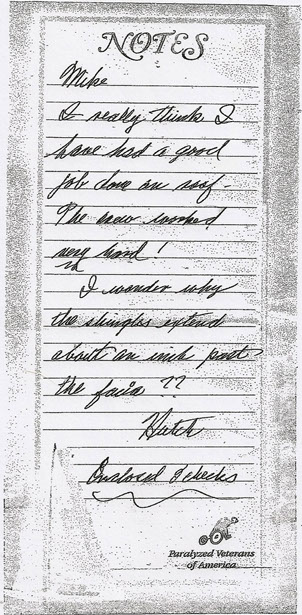 NOTES
Mike
I really think I
have had a good
job done on roof-
The crew worked
very hard!
I wonder why
the shingles extend
about an inch past
the facia ??
Hutch
Enclosed 2 checks
Paralyzed Veterans
of America